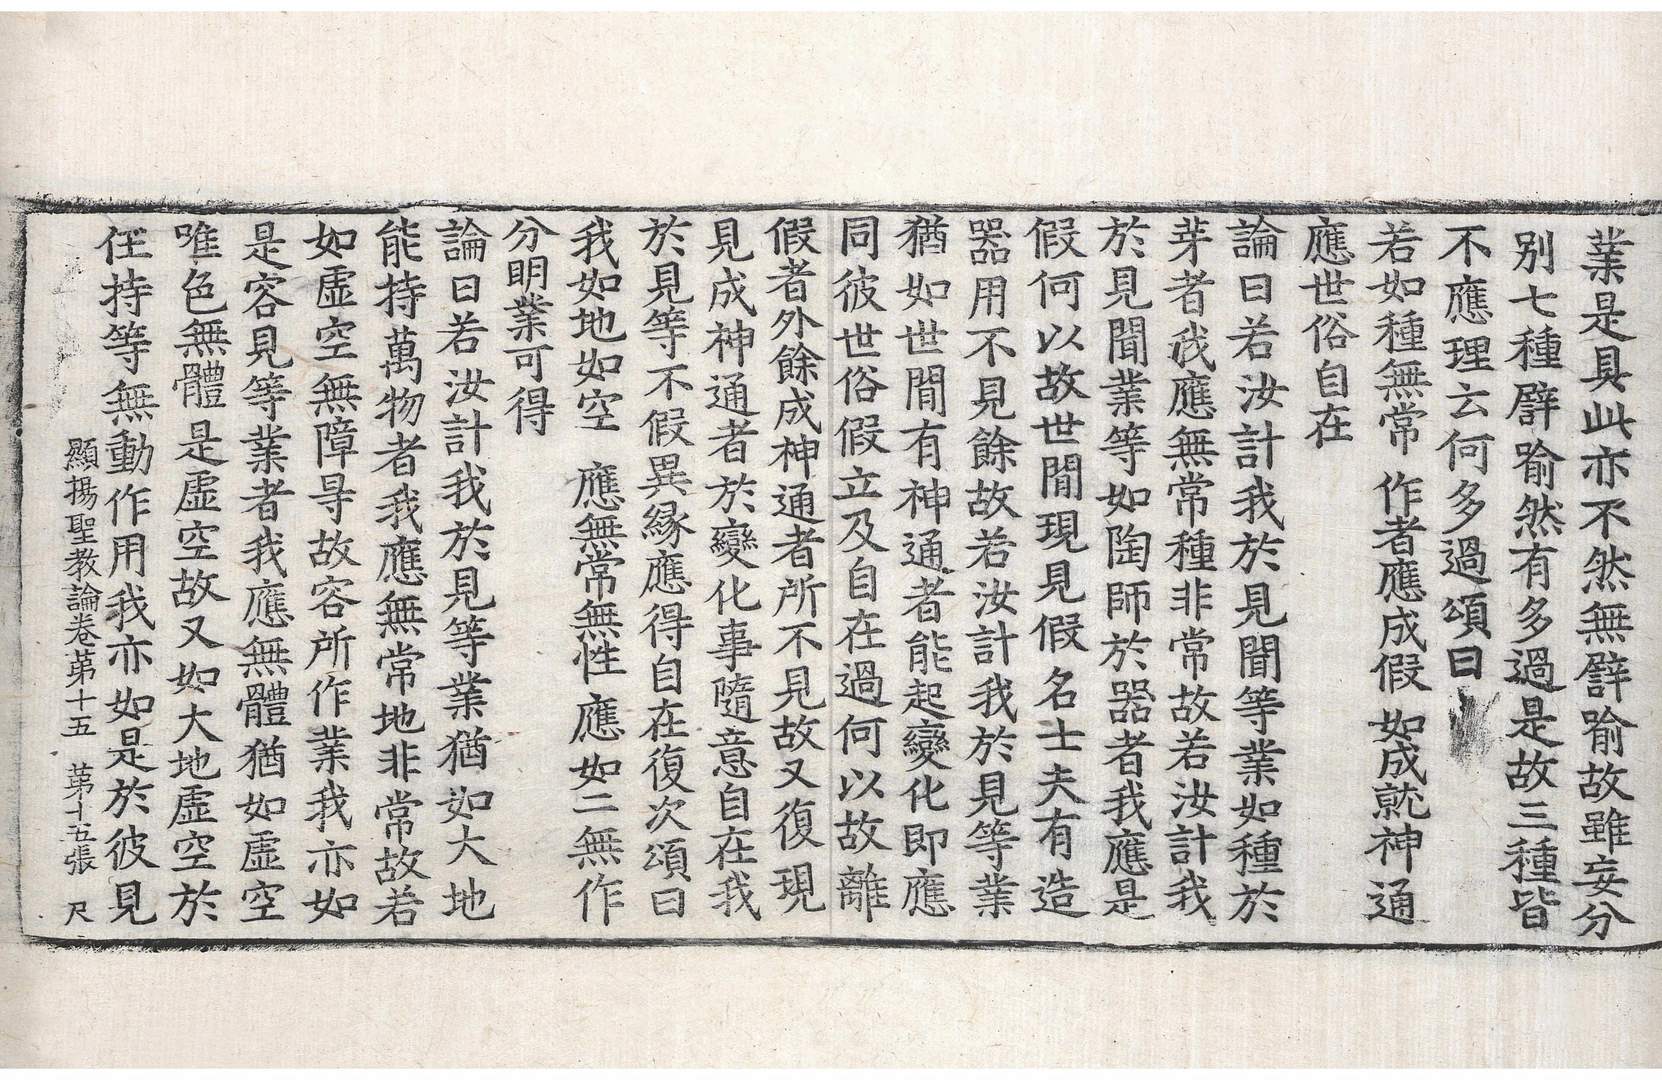 業是具此亦不然無譬喻故雖妄分
別七種譬喻然有多過是故三種皆
不應理云何多過頌曰
若如種無常 作者應成假 如成就神通
應世俗自在
論曰若汝計我於見聞等業如種於
芽者我應無常種非常故若汝計我
於見聞業等如陶師於器者我應是
假何以故世閒現見假名士夫有造
器用不見餘故若汝計我於見等業
猶如世閒有神通者能起變化即應
同彼世俗假立及自在過何以故離
假者外餘成神通者所不見故又復現
見成神通者於變化事隨意自在我
於見等不假異緣應得自在復次頌曰
我如地如空 應無常無性 應如二無作
分明業可得
論曰若汝計我於見等業猶如大地
能持萬物者我應無常地非常故若
如虛空無障㝵故容所作業我亦如
是容見等業者我應無體猶如虛空
唯色無體是虛空故又如大地虛空於
任持等無動作用我亦如是於彼見
顯揚聖教論卷第十五 第十五張 尺